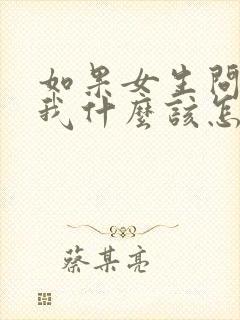 如果女生問
我什麼該怎
蔡某亮